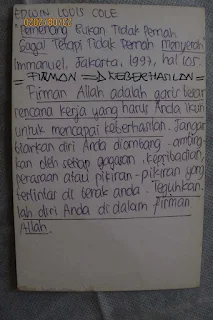 EDWIN LOUIS COLE
Pemenang Bukan Tidak Pernah
Gagal Tetapi Tidak Pernah Menyerah
Immanuel, Jakarta, 1997, hal 105.
=FIRMAN => KEBERHASILAN=
Firman Allah adalah garis besar
rencana kerja yang harus Anda ikuti
untuk mencapai keberhasilan. Jangan
biarkan diri Anda diombang-ambing-
kan oleh setiap gagasan, kepribadian,
perasaan atau pikiran-pikiran yang
terlintas di benak anda. Teguhkan-
lah diri Anda di dalam Firman
Allah.